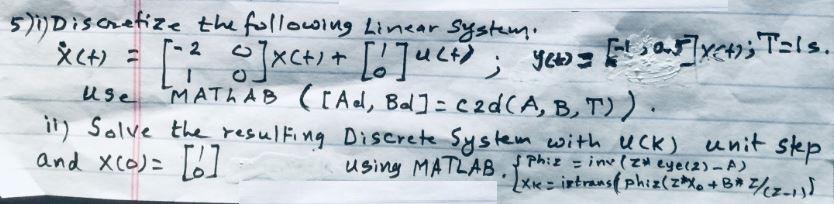 5) i) Discretize the following Linear System.
ẋ(t) = [-2 0 1 0] x(t) + [1 0] u(t) ; y(t) = [-1, 0.5] x(t); T=1s.
use MATLAB ([Ad, Bd] = c2d(A, B, T)).
ii) Solve the resulting Discrete System with u(k) unit step
and x(0) = [1 0] using MATLAB. { Phiz = inv(z*eye(2)-A)
Xk = iztrans(phiz(z*X0 + B*z/(z-1))